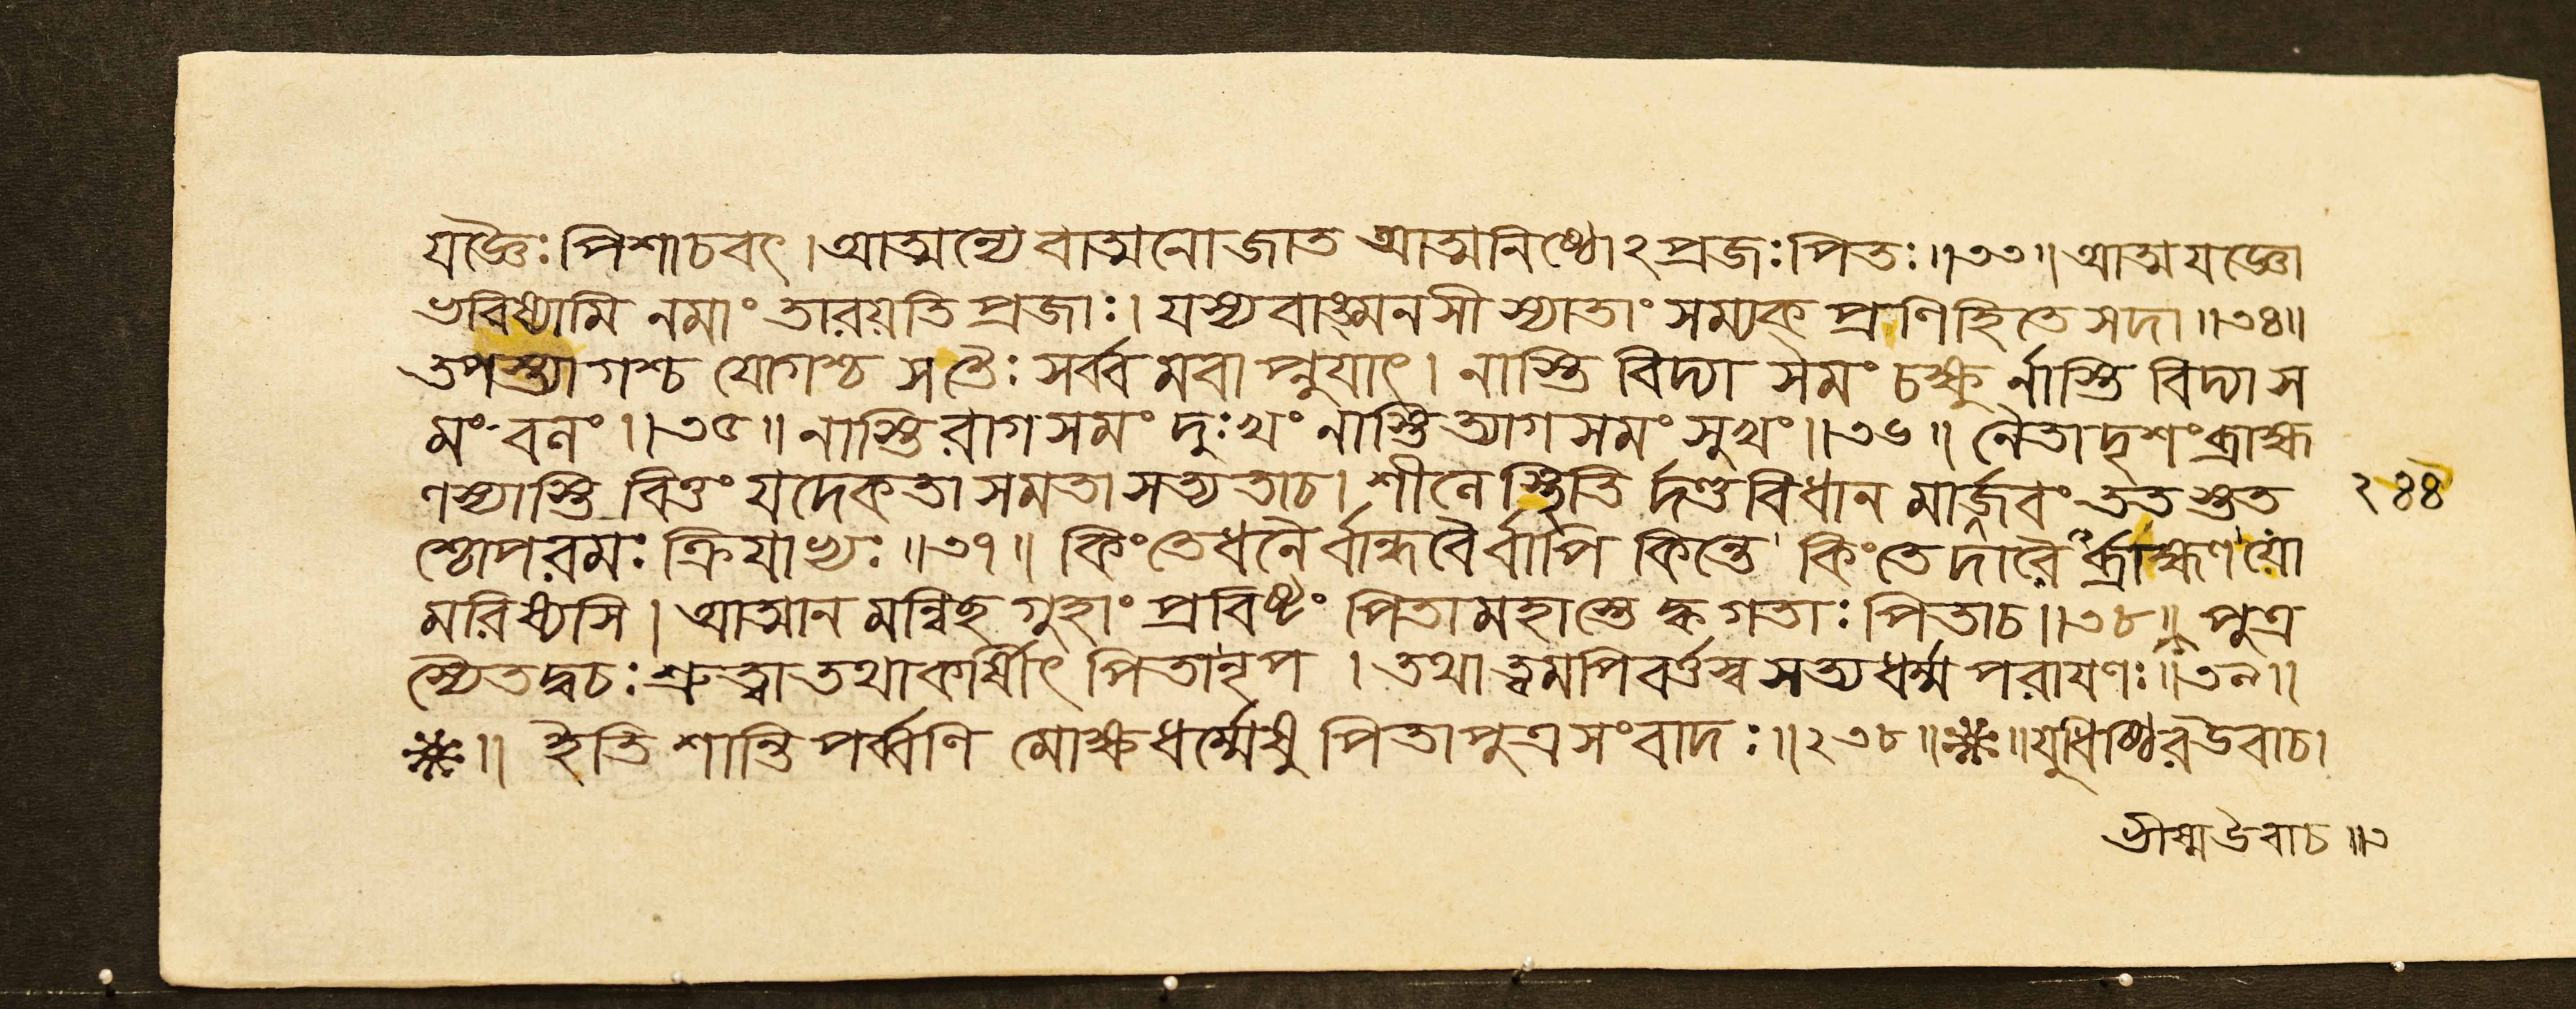 যজ্ঞৈঃ পিশাচবৎ । আত্মন্যেবাত্মনো জাত আত্মনিষ্ঠোঽপ্রজঃ পিতঃ ॥৩৩॥ আত্মযজ্ঞো
ভবিষ্যামি নমাং তারয়তি প্রজাঃ । যস্য বাঙ্মনসী স্যাতাং সম্যক্ প্রণিহিতে সদা ॥৩৪॥
তপস্ত্যাগশ্চ যোগশ্চ সতৈঃ সর্ব্বমবাপ্নুযাৎ । নাস্তি বিদ্যা সমং চক্ষু র্নাস্তি বিদ্যা স
মং বনং ॥৩৫॥ নাস্তি রাগসমং দুঃখং নাস্তি ত্যাগসমং সুখং ॥৩৬॥ নৈতাদৃশং ব্রাহ্ম
ণস্যাস্তি বিত্তং যদেকতা সমতা সত্যতাচ । শীলে স্থিতি র্দণ্ডবিধান মার্জ্জবং ততস্তত
শ্চোপরমঃ ক্রিযাভ্যঃ ॥৩৭॥ কিং তে ধনৈ র্বান্ধবৈর্বাপি কিন্তে কিং তে দারৈ র্ব্রাহ্মণ যো
মরিষ্যসি । আত্মান মন্বিছ গুহাং প্রবিষ্টং পিতামহাস্তে ক্ব গতাঃ পিতাচ ॥৩৮॥ পুত্র
স্যৈতদ্বচঃ শ্রুত্বা তথাকার্ষীৎ পিতানৃপ । তথা ত্বমপি বর্ত্তস্ব সত্যধর্ম্মপরাযণঃ ॥৩৯॥
॥ ইতি শান্তিপর্ব্বণি মোক্ষধর্ম্মেষু পিতাপুত্রসংবাদঃ ॥২৩৮॥ ॥ যুধিষ্ঠির উবাচ।
২৪৪
ভীষ্ম উবাচ ॥৩